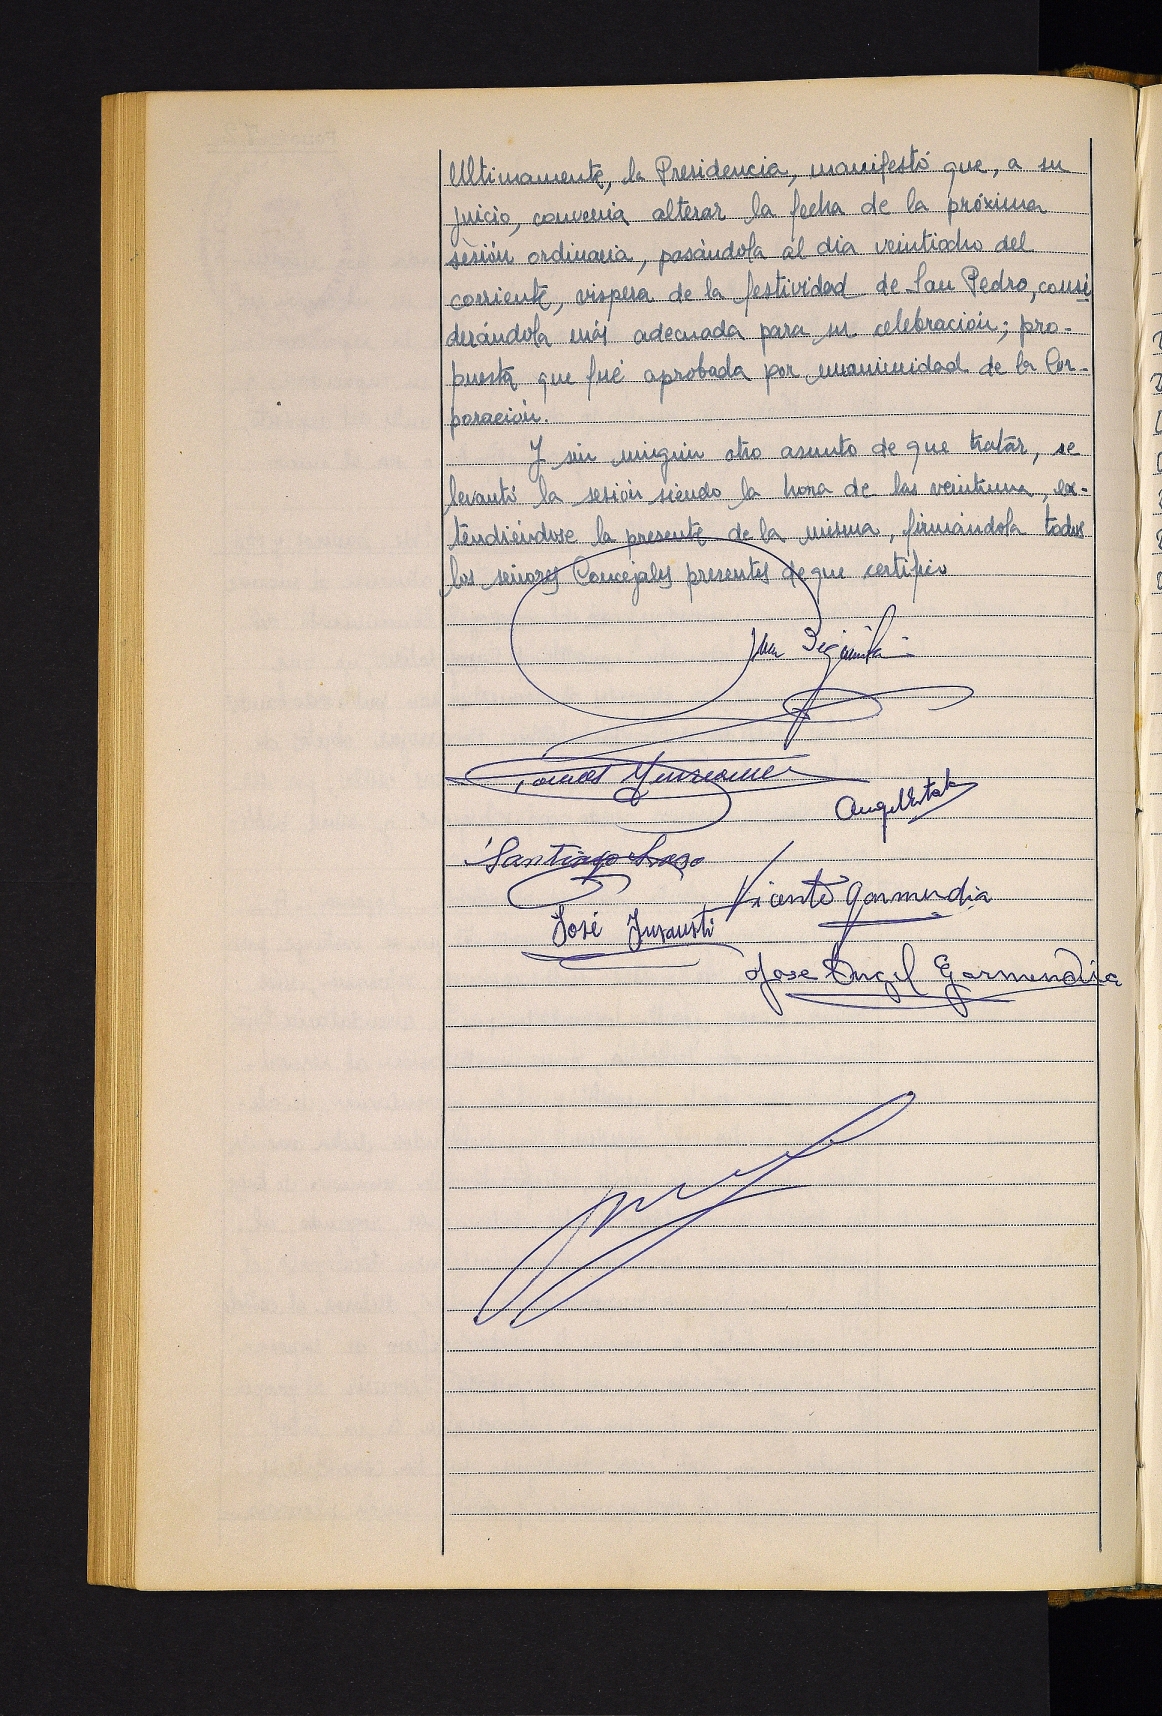 Ultimamente, la Presidencia, manifestó que, a su
juicio, convenia alterar la fecha de la próxima
sesión ordinaria, pasándola al dia veintiocho del
corriente, vispera de la festividad de San Pedro, consi
derándola más adecuada para su celebración; pro-
puesta que fué aprobada por unanimidad de la Cor-
poración.
Y sin ningún otro asunto de que tratar, se
levantó la sesión siendo la hora de las veintiuna, ex-
tendiéndose la presente de la misma, firmándola todos
los señores Concejales presentes de que certifico
Juan
Tomas
Angel
Santiago
Vicente Garmendia
José Insausti
Jose Angel Garmendia